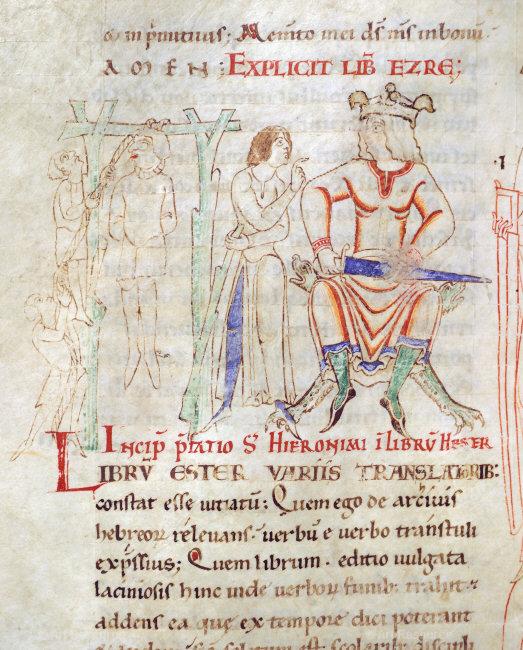 Memto mei ds ms inbonu
AMEN; EXPLICIT LIB EZRE;
INCIP PFATIO S HIERONIMI I LIBRU HESTER
LIBRV ESTER VARIIS TRANSLATORIB:
constat esse uitiatu; Quem ego de arciuis
hebreor releuans uerbu e uerbo transtuli
expssius; Quem librum editio uulgata
laciniosis hinc inde uerbor funib trahit
addens ea que ex tempore dici poterant